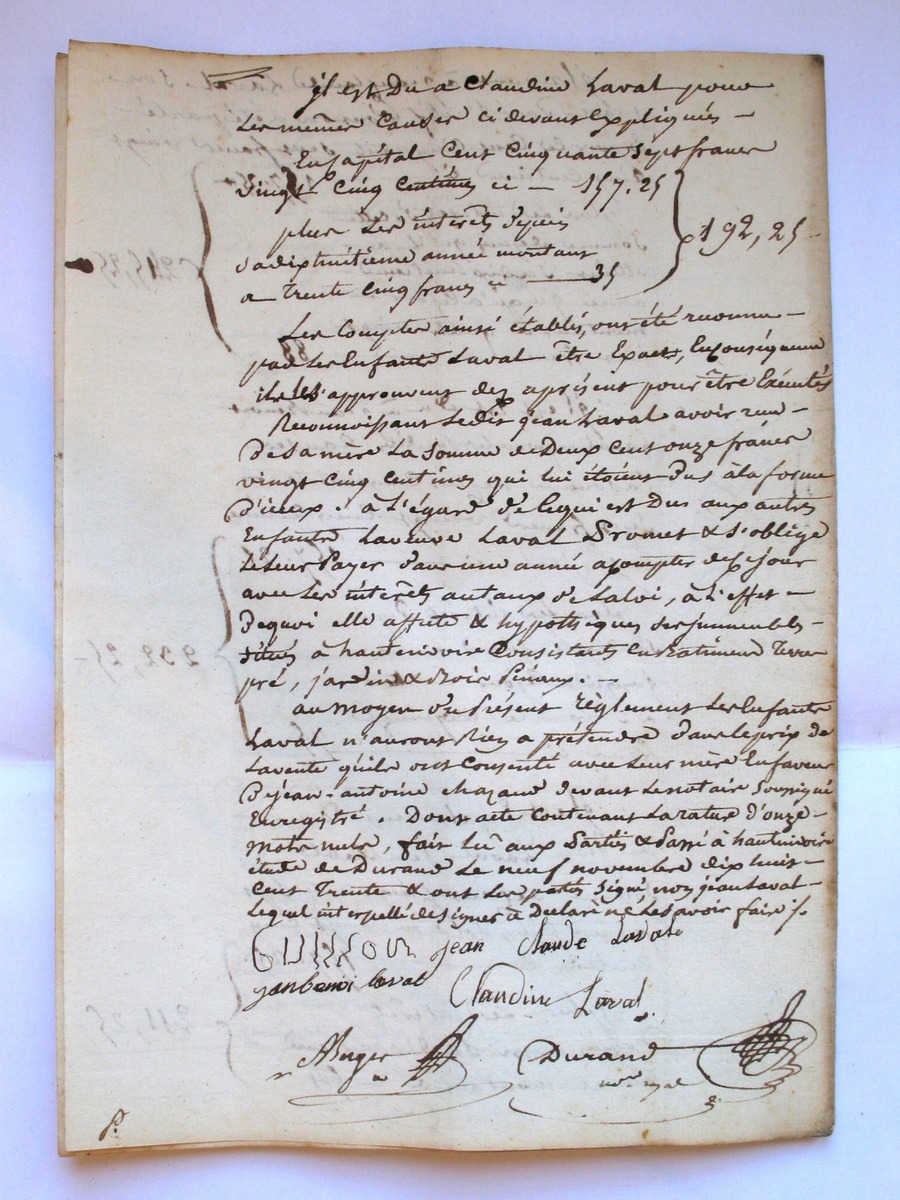 il est Du a Claudine Laval pour
Les mêmes Causes ci devant Expliqués —
En Capital Cent Cinquante Sept francs
Vingt Cinq Centimes ci — 157.25
plus Les interêts depuis
sa dixhuitième année montant
a Trente Cinq francs ci — 35
192,25 —
Les Comptes ainsi établis, ont été reconnu —
par Les Enfants Laval être Exact, En Conséquence
ils les approuvent dez aprésent pour être Exécutés
Reconnoissant Ledit jean Laval avoir recu —
De Sa mère La Somme de Deux Cent onze francs
vingt Cinq Centimes qui lui étoient Dus à la forme
D'iceux. à L'égard de Ce qui est Dus aux autres
Enfants La veuve Laval Promet & s'oblige
Le Leur Payer dans une année a Compter de Ce Jour
avec Les interêts au taux de La loi, à L'effet —
De quoi elle affecte & hypothèques Ses immeubles
Situés à hauterivoire Consistants En Batiment Terre
pré, jardin & Bois Pinaux. —
au moyen du Présent Règlement Les Enfants
Laval n'auront Rien a prétendre dans Le prix de
La vente qu'ils ont Consenti avec Leur mère En faveur
De jean-antoine Chazaud devant Le notaire Soussigné
Enregistré. Dont acte Contenant La rature d'onze —
mots nuls, fait Lû aux Parties & Passé à hauterivoire
étude de Durand Le neuf novembre dix huit —
Cent Trente & ont Les parties Signé non jean Laval —
Lequel interpellé de signer à Declaré ne Le Savoir faire ./.
jean Claude Lavale
Claudine Laval
Durand
nore royal
P.